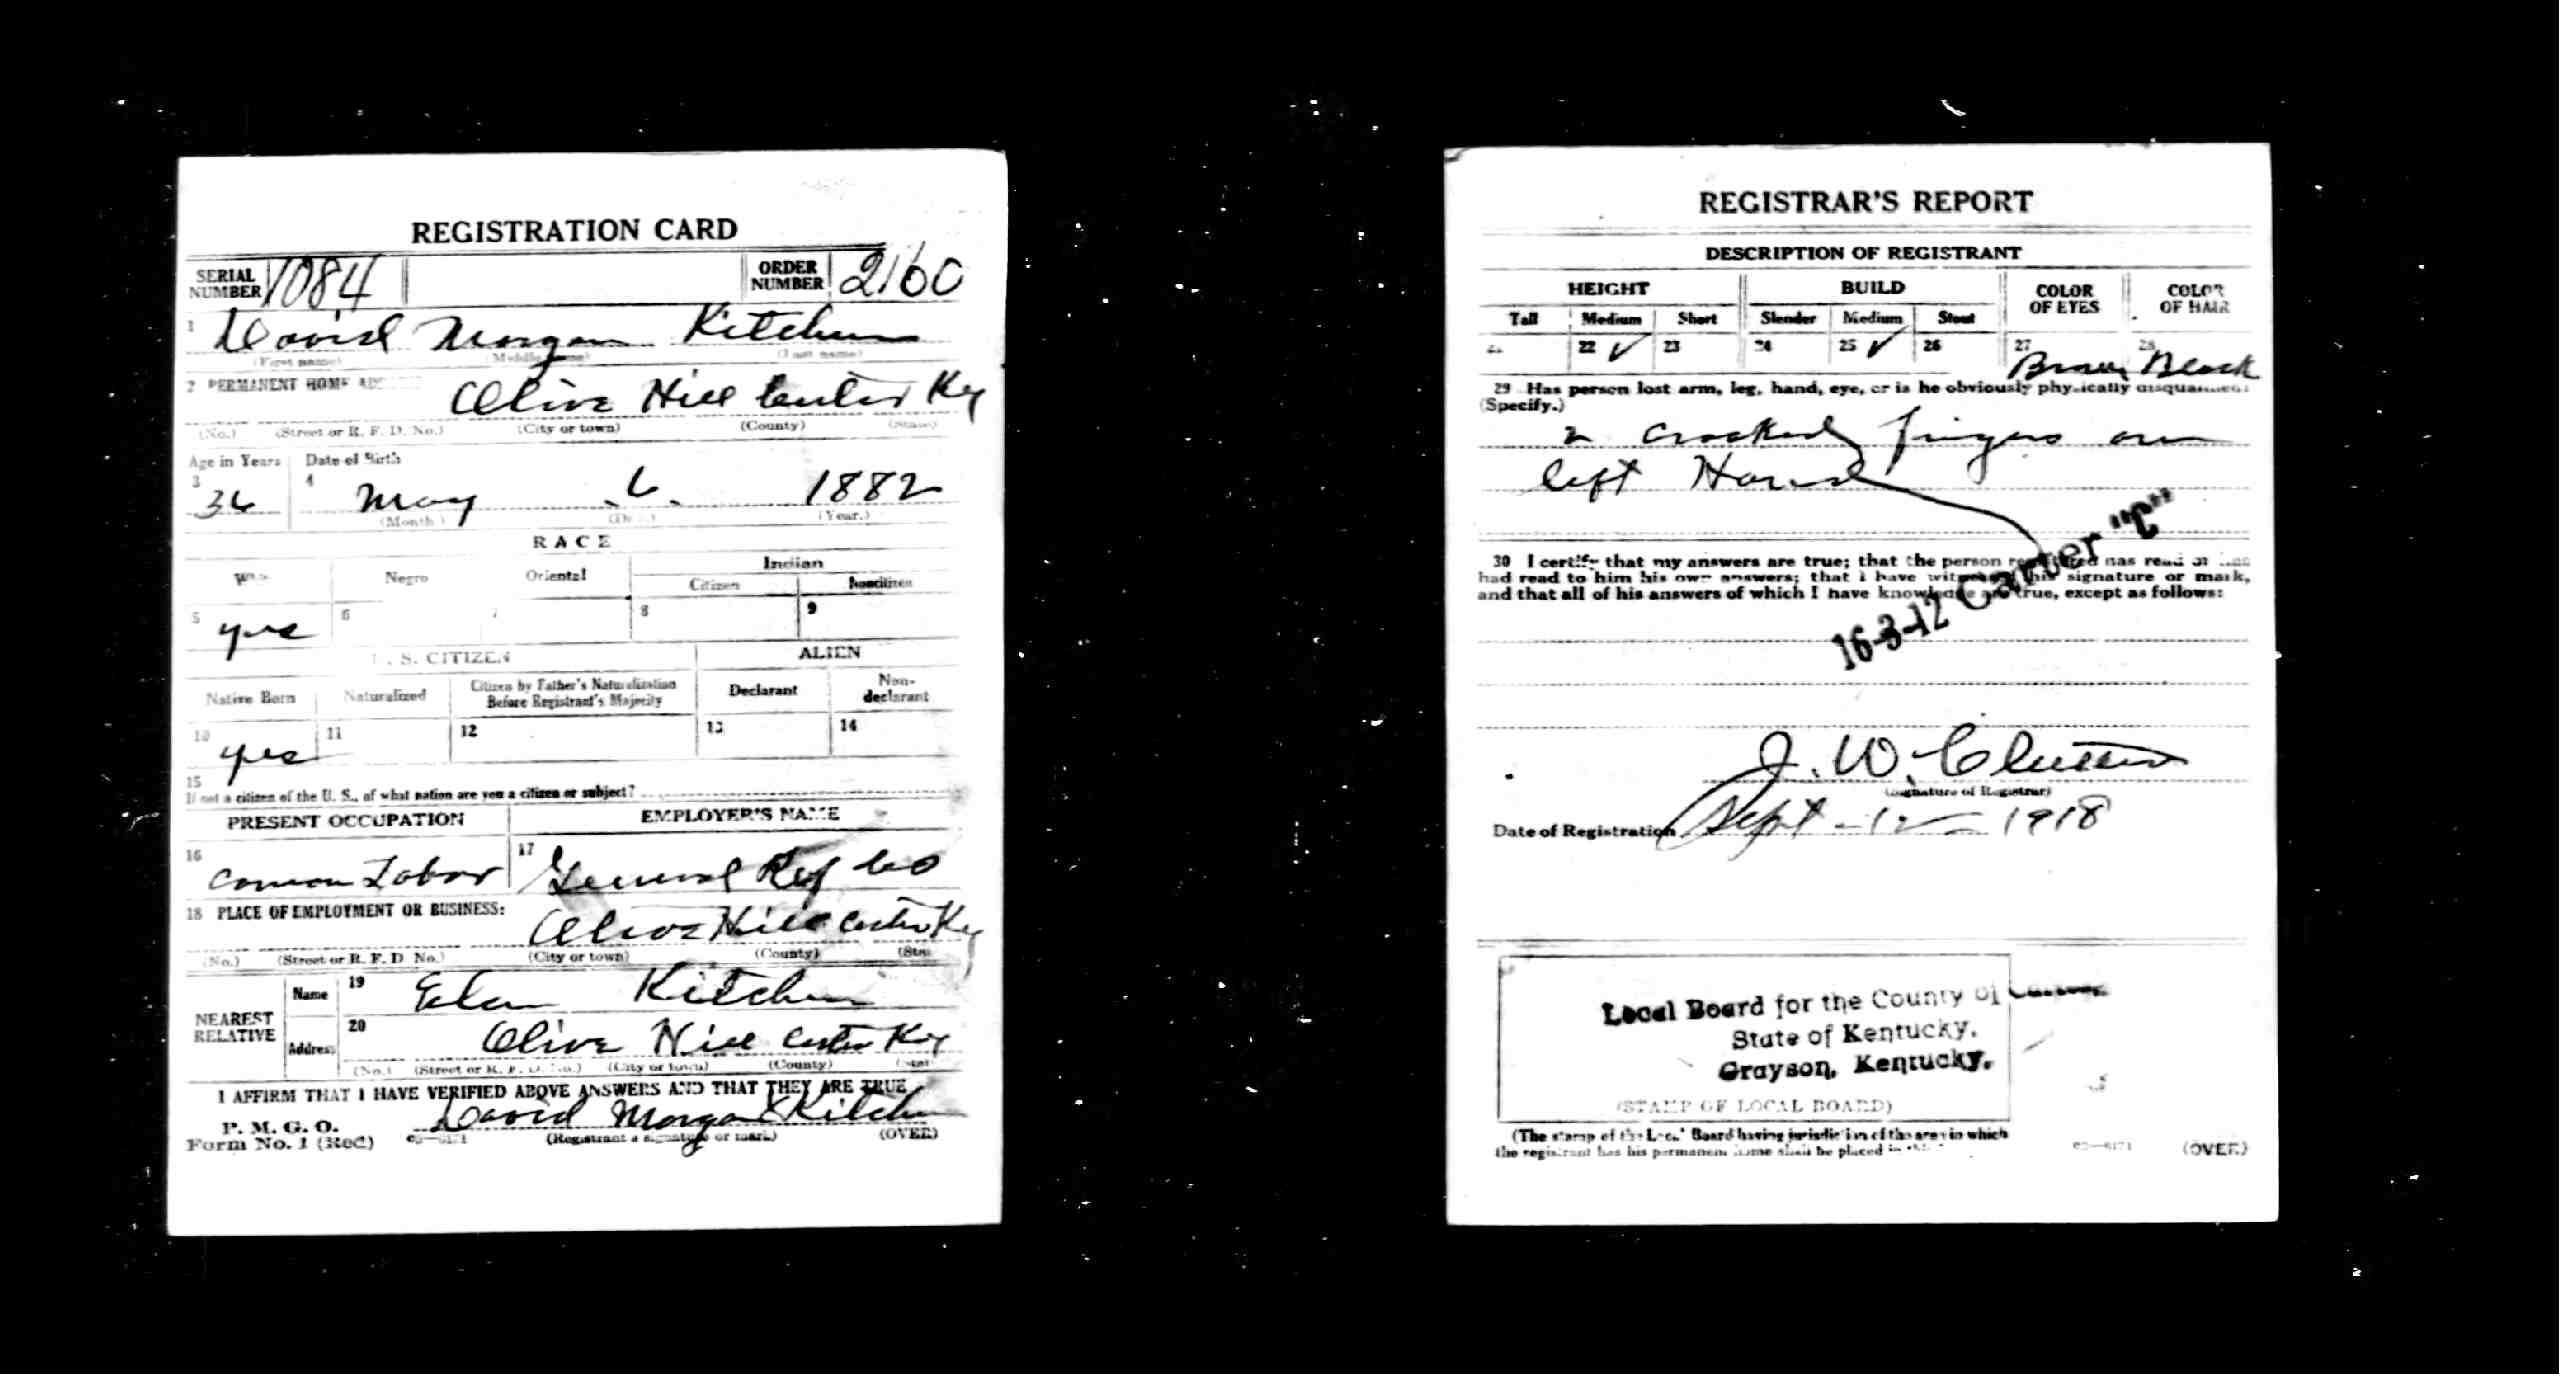 REGISTRATION CARD
SERIAL NUMBER 1084 ORDER NUMBER 2160
1 David Morgan Kitchen
(First name) (Middle name) (Last name)
2 PERMANENT HOME
Olive Hill Carter Ky
(No.) (Street or R. F. D. No.) (City or town) (County) (State)
Age in Years Date of Birth
3 36 4 May 6 1882
(Month) (Day) (Year.)
RACE
Negro Oriental Indian
Citizen Noncitizen
5 yes 6 7 8 9
U. S. CITIZEN ALIEN
Native Born Naturalized Citizen by Father's Naturalization Before Registrant's Majority Declarant Non-declarant
10 yes 11 12 13 14
15
If not a citizen of the U. S., of what nation are you a citizen or subject?
PRESENT OCCUPATION EMPLOYER'S NAME
16 Labor 17 General Ref Co
18 PLACE OF EMPLOYMENT OR BUSINESS:
Olive Hill Carter Ky
(No.) (Street or R. F. D. No.) (City or town) (County)
NEAREST RELATIVE
Name 19 Kitchen
Address 20 Olive Hill Carter Ky
(No.) (Street or R. F. D. No.) (City or town) (County)
I AFFIRM THAT I HAVE VERIFIED ABOVE ANSWERS AND THAT THEY ARE TRUE
David Morgan Kitchen
P. M. G. O.
Form No. 1 (Red) (Registrant's signature or mark) (OVER)
REGISTRAR'S REPORT
DESCRIPTION OF REGISTRANT
HEIGHT BUILD COLOR OF EYES COLOR OF HAIR
Tall Medium Short Slender Medium Stout
21 22 ✓ 23 24 25 ✓ 26 27 Brown 28 Black
29 Has person lost arm, leg, hand, eye, or is he obviously physically
(Specify.)
2 crooked fingers on
left Hand
30 I certify that my answers are true; that the person registered has read or has
had read to him his own answers; that I have witnessed his signature or mark,
and that all of his answers of which I have knowledge are true, except as follows:
16-3-12 Carter "C"
J. W.
(Signature of Registrar)
Date of Registration Sept - 12 - 1918
Local Board for the County of
State of Kentucky,
Grayson, Kentucky.
(STAMP OF LOCAL BOARD)
(The stamp of the Local Board having jurisdiction of the area in which
the registrant has his permanent home shall be placed in
(OVER)